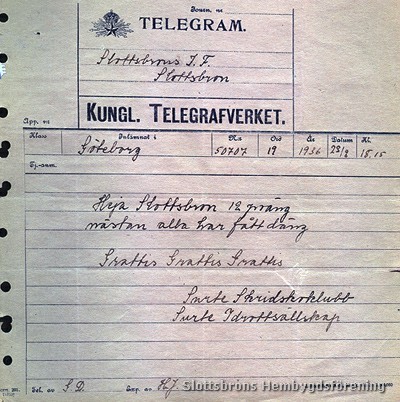 Journ. nr
TELEGRAM.
Slottsbrons I.F.
Slottsbron
KUNGL. TELEGRAFVERKET.
App. nr
Klass Inlämnat i N:r Ord År Datum Kl.
Göteborg 50707 19 1936 23/2 15,15
Tj.-anm.
Heja Slottsbron 12 poäng
nästan alla har fått däng
Grattis Grattis Grattis
Surte Skridskoklubb
Surte Idrottsällskap
Tel. av S.D. Exp. av HJ
Slottsbrons Hembygdsförening